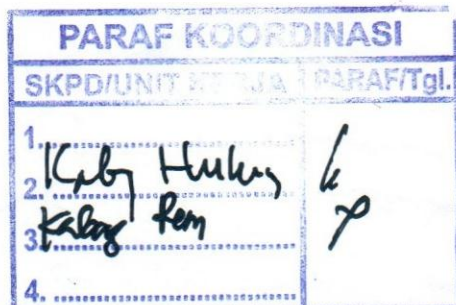 PARAF KOORDINASI
SKPD/UNIT KERJA PARAF/Tgl.
1.
Kabag Hukum
2.
Kabag Pem
3.
4.